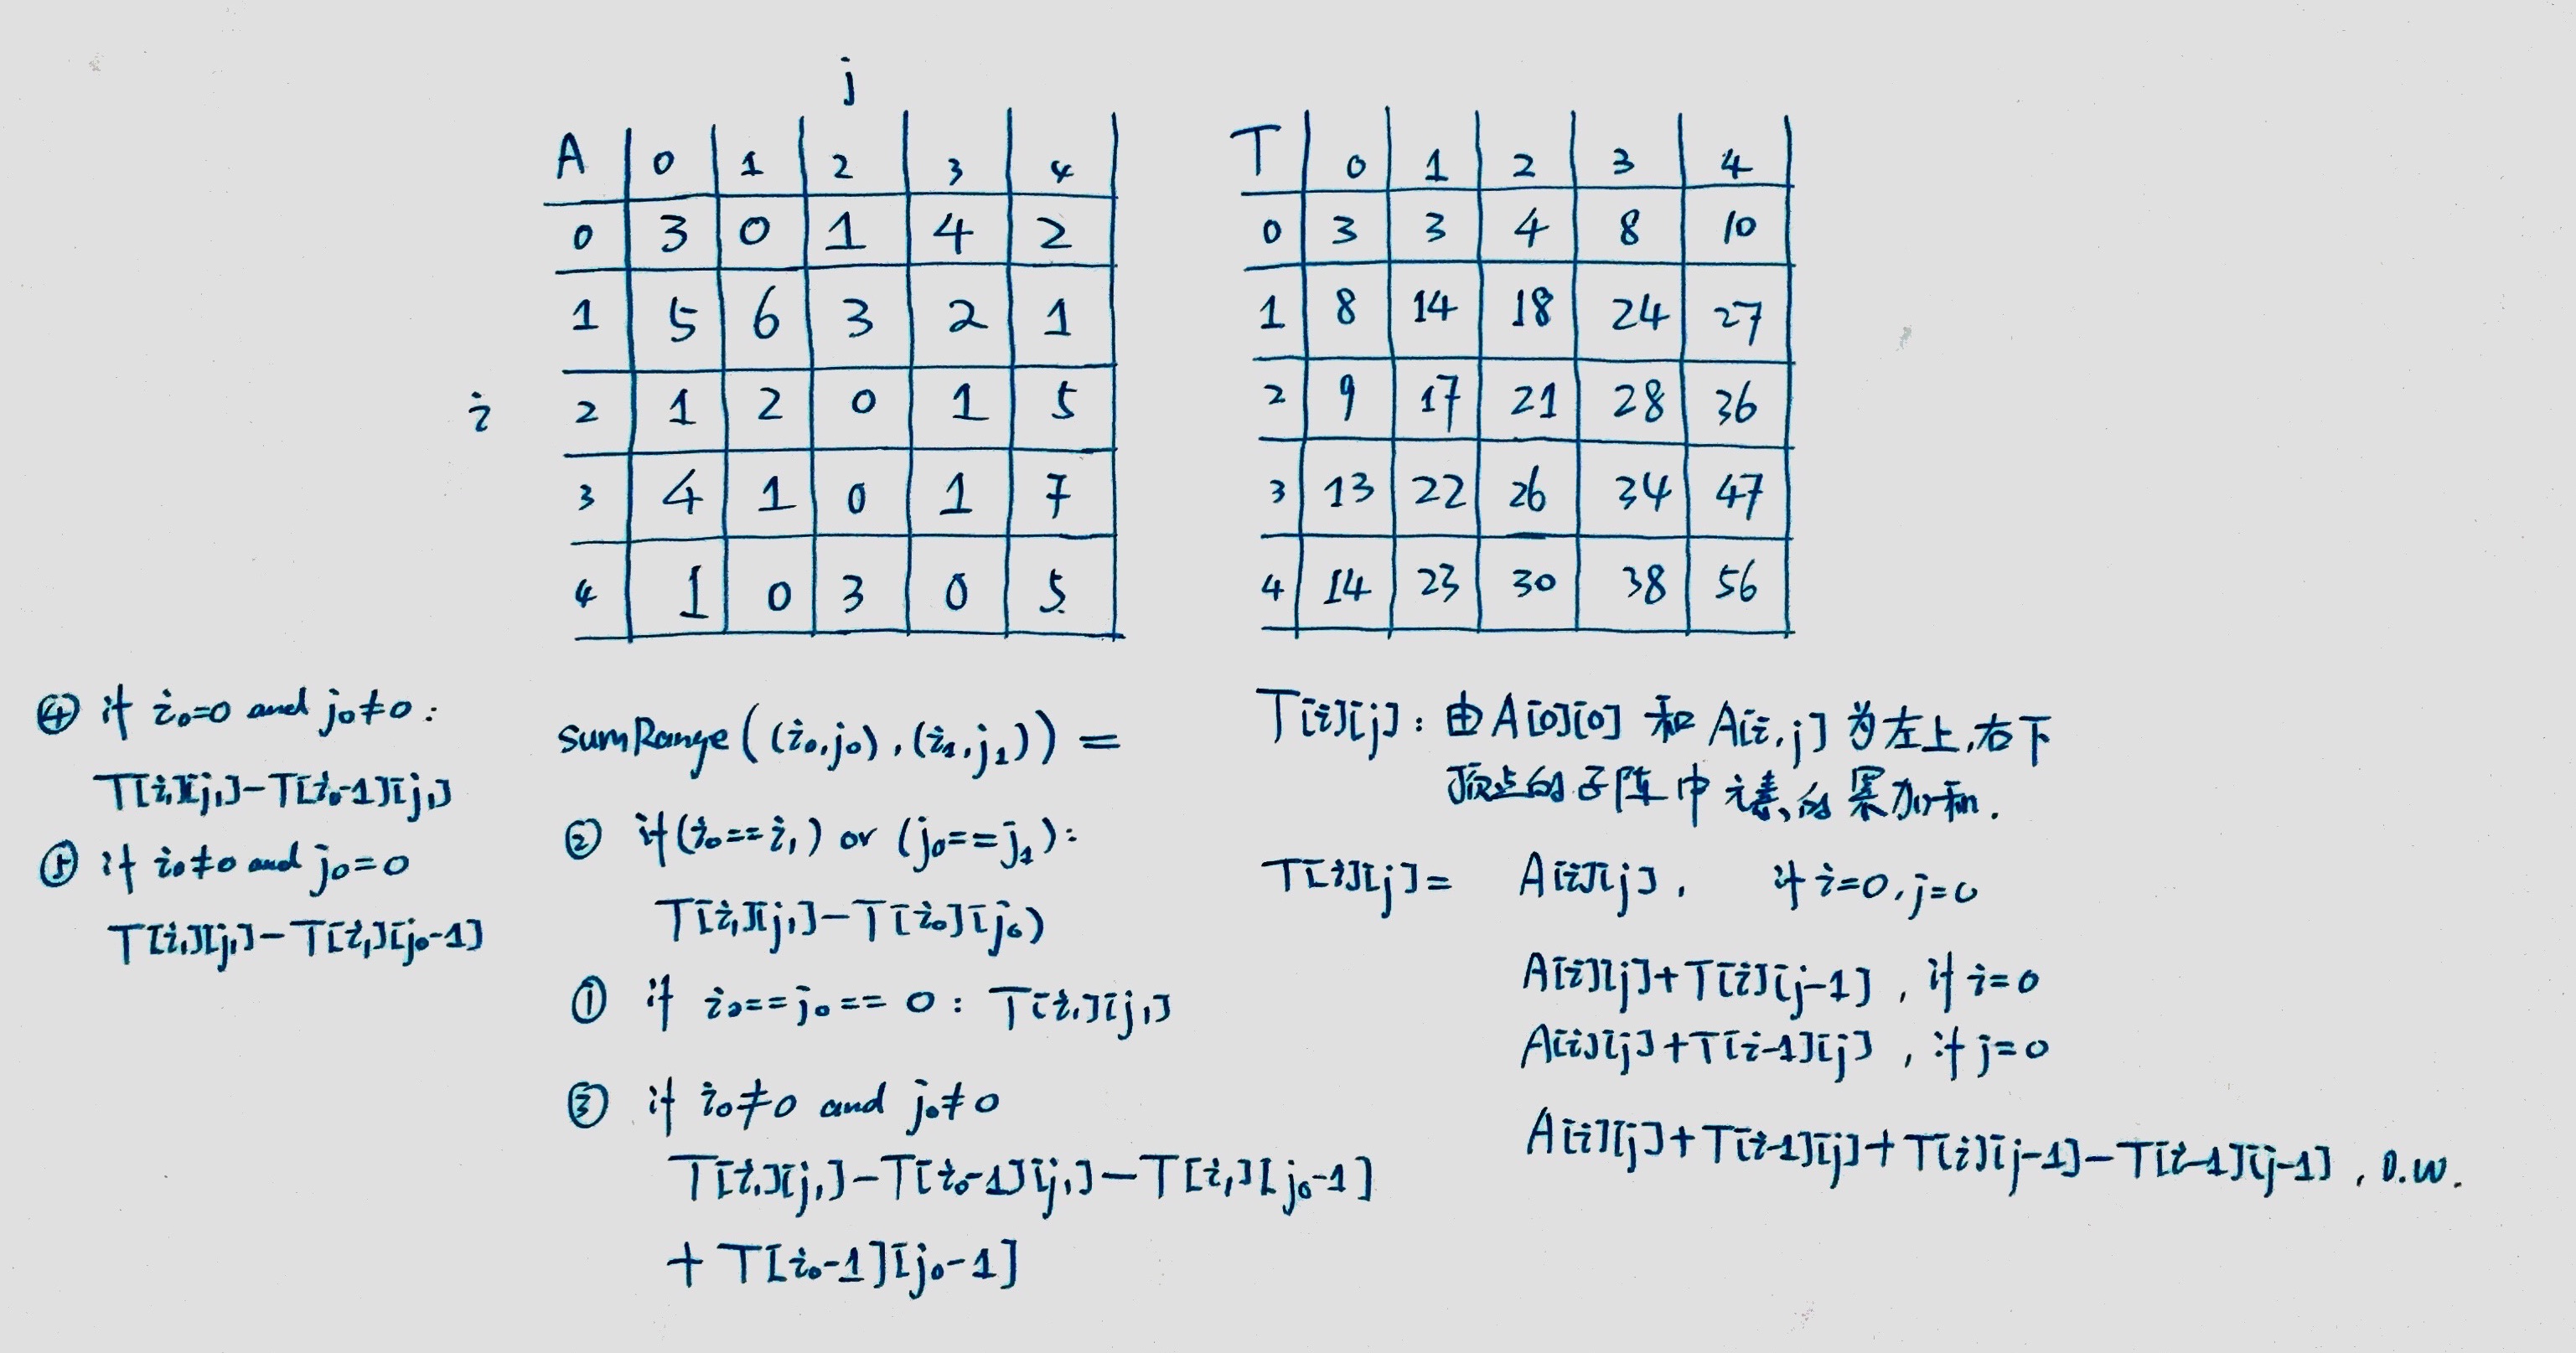 j
A 0 1 2 3 4
0 3 0 1 4 2
1 5 6 3 2 1
i 2 1 2 0 1 5
3 4 1 0 1 7
4 1 0 3 0 5
T 0 1 2 3 4
0 3 3 4 8 10
1 8 14 18 24 27
2 9 17 21 28 36
3 13 22 26 34 47
4 14 23 30 38 56
④ if i₀=0 and j₀≠0:
T[i₁][j₁]-T[i₀-1][j₁]
⑤ if i₀≠0 and j₀=0
T[i₁][j₁]-T[i₁][j₀-1]
sumRange((i₀,j₀),(i₁,j₁)) =
② if(i₀==i₁) or (j₀==j₁):
T[i₁][j₁]-T[i₀][j₀)
① if i₀==j₀== 0: T[i₁][j₁]
③ if i₀≠0 and j₀≠0
T[i₁][j₁]-T[i₀-1][j₁]-T[i₁][j₀-1]
+ T[i₀-1][j₀-1]
T[i][j]: 由A[0][0] 和 A[i,j] 为左上,右下
顶点的子阵中元素的累加和.
T[i][j]= A[i][j], if i=0,j=0
A[i][j]+T[i][j-1], if i=0
A[i][j]+T[i-1][j], if j=0
A[i][j]+T[i-1][j]+T[i][j-1]-T[i-1][j-1], O.W.